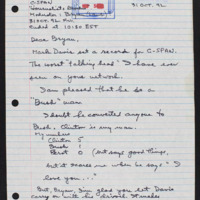 C-SPAN
31 OCT. 92
Journalists
Moderator: Bryan
31 OCT 92
Ended at 10:30 EST
Dear Bryan,
Mark Davis set a records for C-SPAN.
The worst "talking head" I have ever
seen on your network.
I am pleased that he is a
"Bush" man
I should be converted anyone to
Bush. Clinton is my man.
My numbers
Clinton 5
Bush 1
Perot 0 (but says good things,
but it scares me when he says "I
love you...")
But, Bryan, I'm glad you let Davis
carry on with his